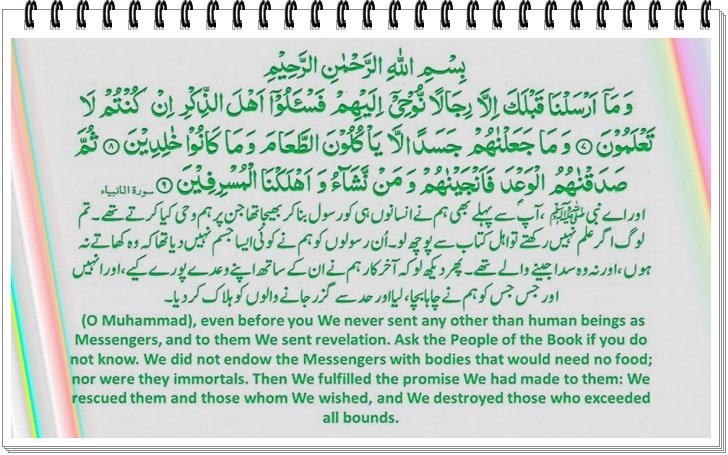 بِسْمِ اللهِ الرَّحْمٰنِ الرَّحِيْمِ
وَ مَاۤ اَرْسَلْنَا قَبْلَكَ اِلَّا رِجَالًا نُّوْحِيْۤ اِلَيْهِمْ فَسْـَٔلُوْۤا اَهْلَ الذِّكْرِ اِنْ كُنْتُمْ لَا
تَعْلَمُوْنَ ۷ وَ مَا جَعَلْنٰهُمْ جَسَدًا لَّا يَاْكُلُوْنَ الطَّعَامَ وَ مَا كَانُوْا خٰلِدِيْنَ ۸ ثُمَّ
صَدَقْنٰهُمُ الْوَعْدَ فَاَنْجَيْنٰهُمْ وَ مَنْ نَّشَآءُ وَ اَهْلَكْنَا الْمُسْرِفِيْنَ ۹ سورۃ الانبیاء
اور اے نبی ﷺ ، آپ سے پہلے بھی ہم نے انسانوں ہی کو رسول بنا کر بھیجا تھا جن پر ہم وحی کیا کرتے تھے۔ تم
لوگ اگر علم نہیں رکھتے تو اہل کتاب سے پوچھ لو۔ اُن رسولوں کو ہم نے کوئی ایسا جسم نہیں دیا تھا کہ وہ کھاتے نہ
ہوں، اور نہ وہ سدا جینے والے تھے۔ پھر دیکھ لو کہ آخر کار ہم نے ان کے ساتھ اپنے وعدے پورے کیے، اور انہیں
اور جس جس کو ہم نے چاہا بچا لیا اور حد سے گزر جانے والوں کو ہلاک کر دیا۔
(O Muhammad), even before you We never sent any other than human beings as
Messengers, and to them We sent revelation. Ask the People of the Book if you do
not know. We did not endow the Messengers with bodies that would need no food;
nor were they immortals. Then We fulfilled the promise We had made to them: We
rescued them and those whom We wished, and We destroyed those who exceeded
all bounds.